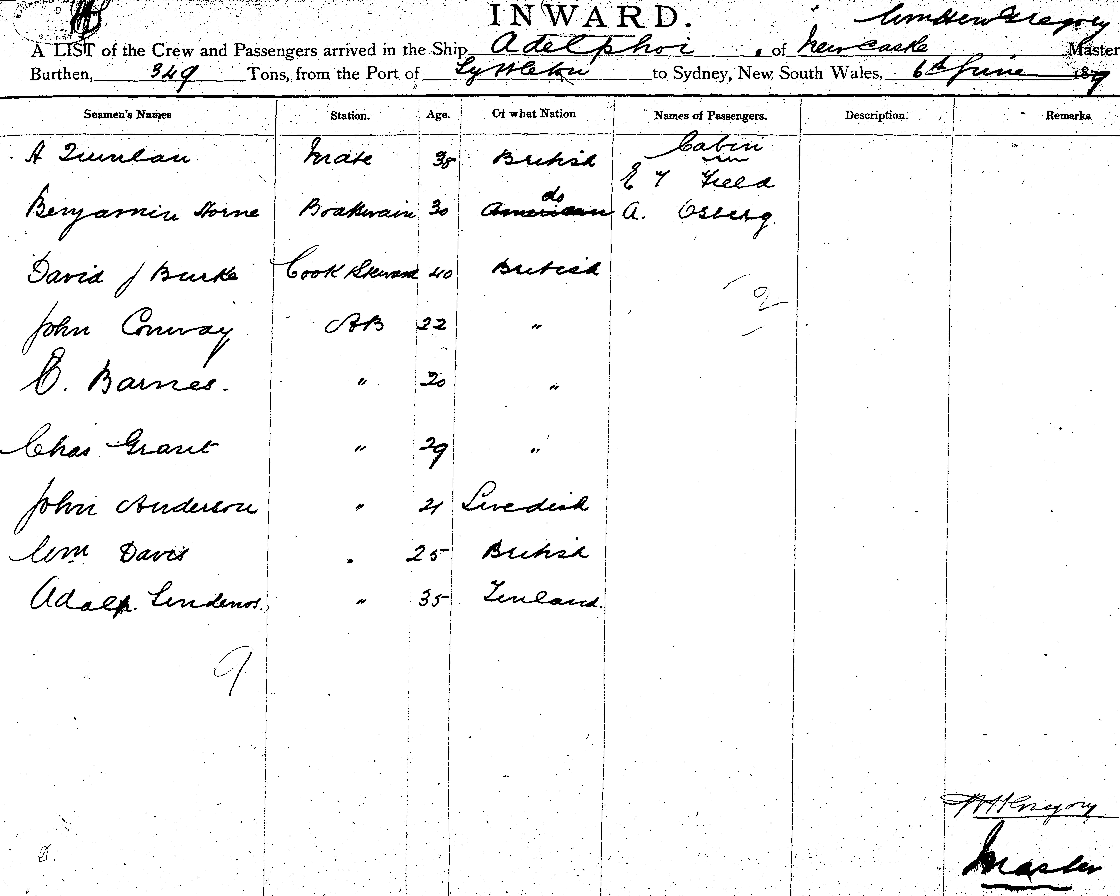 INWARD.
Gregory
A LIST of the Crew and Passengers arrived in the Ship Adelphoi , of Newcastle Master
Burthen, 349 Tons, from the Port of Lyttleton to Sydney, New South Wales, 6th June 189
Seamen's Names Station. Age. Of what Nation Names of Passengers. Description. Remarks
Cabin
A Quinlan Mate 38 British E Y Field
do
Benjamin Horne Boatswain 30 American A. Osberg
David J Burke Cook Steward 40 British
2
John Conway AB 22 "
E. Barnes. " 20 "
Chas Grant " 29 "
John Anderson " 21 Swedish
Wm Davis " 25 British
Adolp. " 35 Finland.
9
Gregory
Master